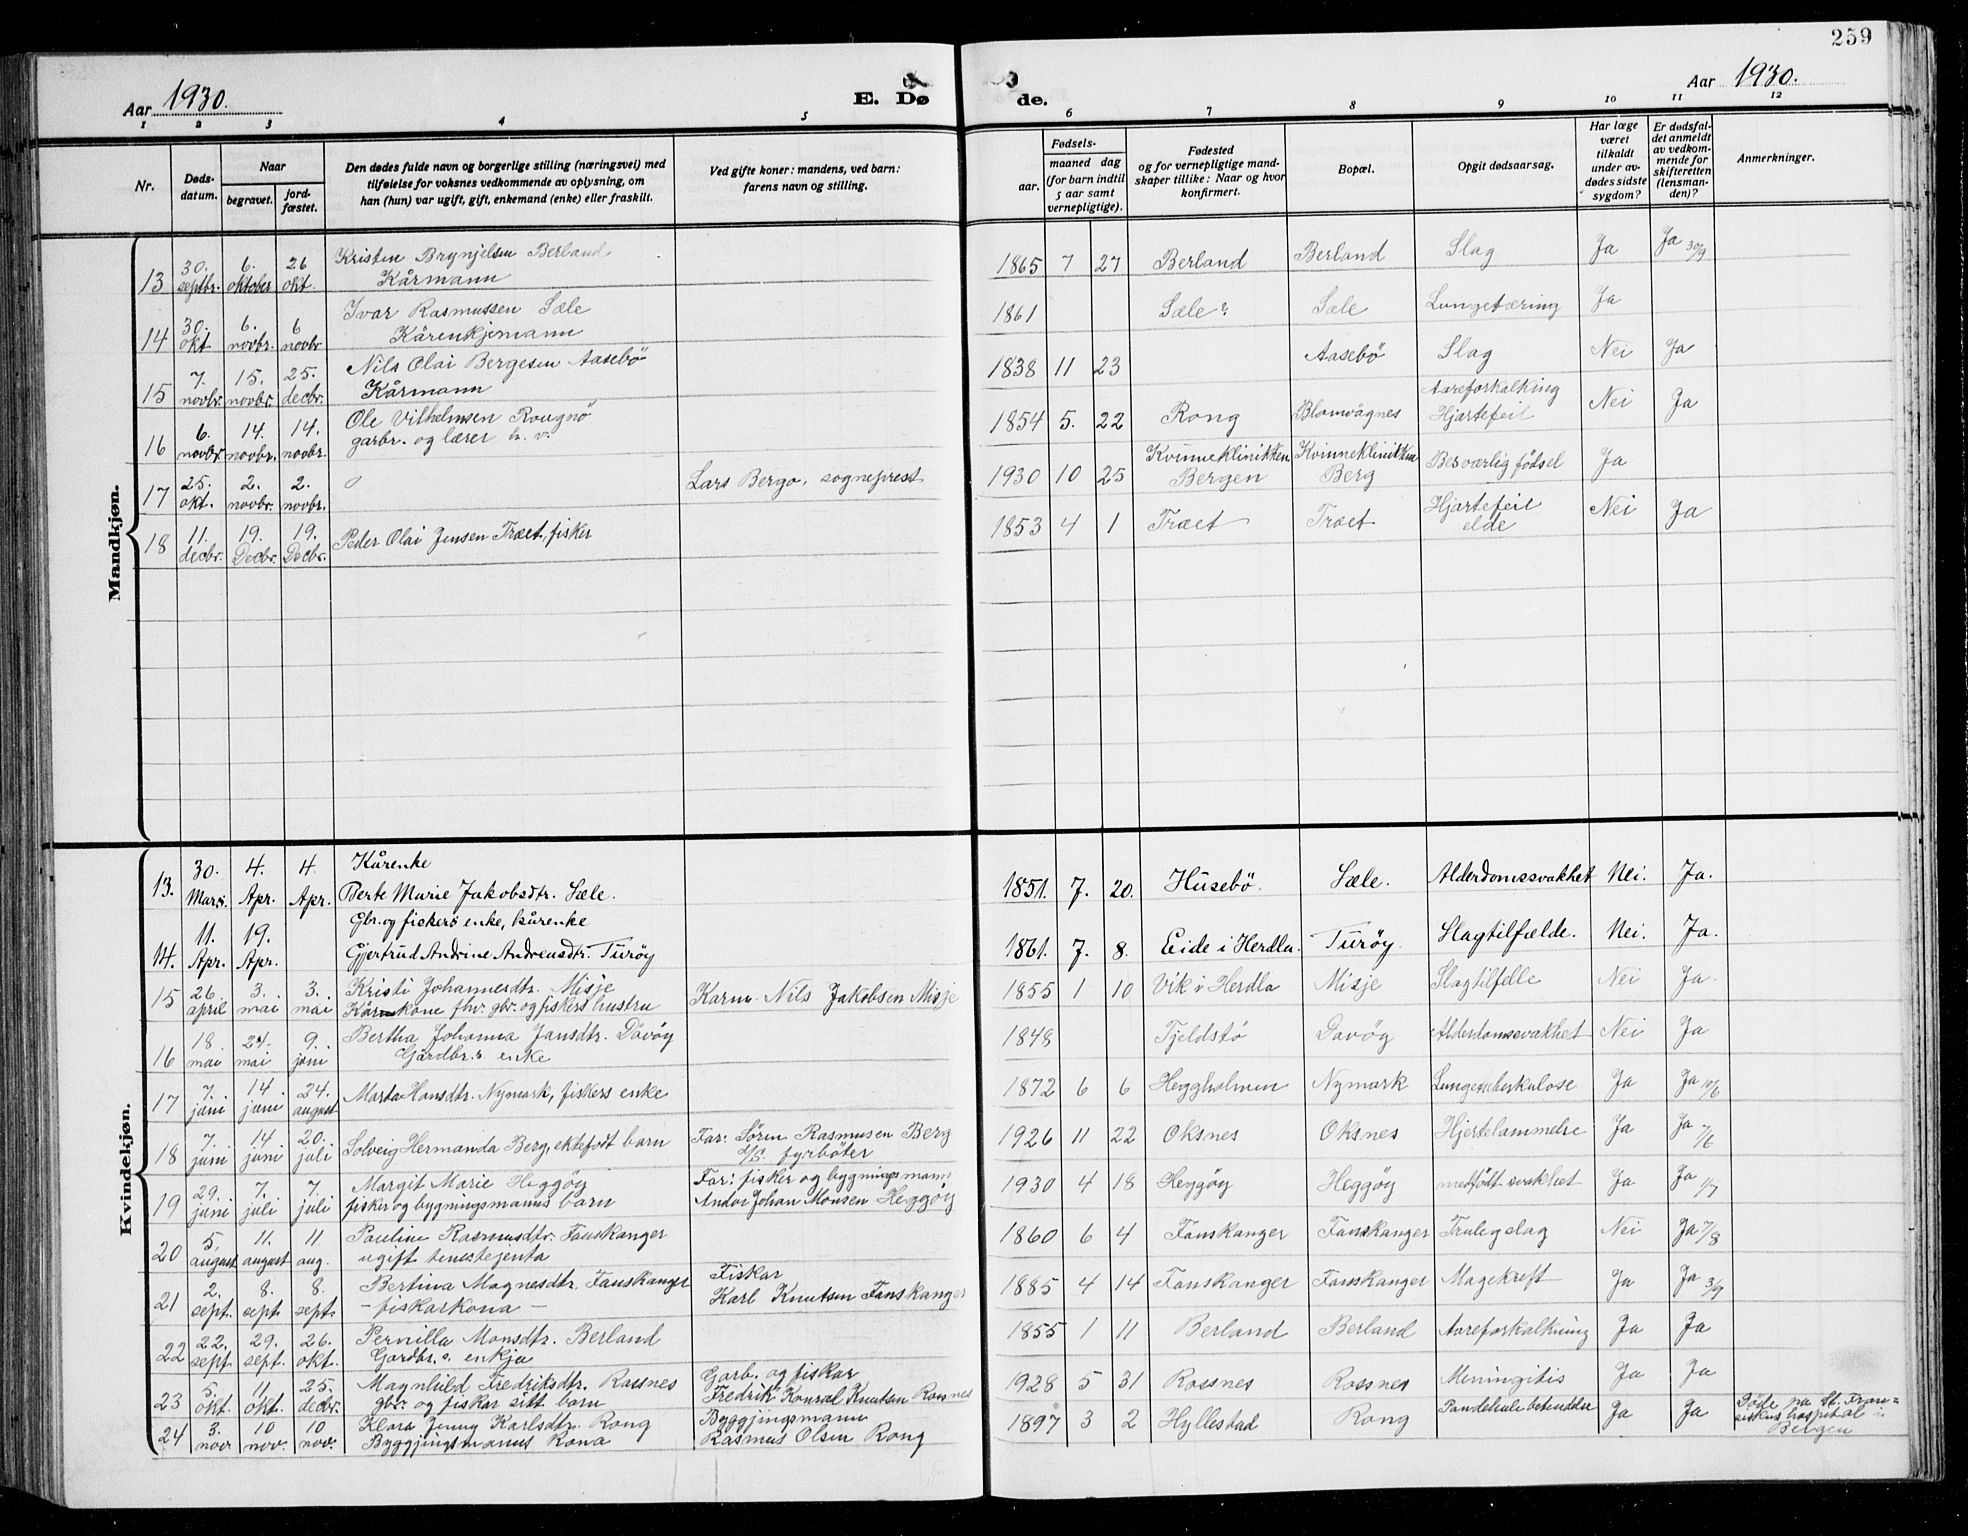 259
Aar 1930.
E. Dø
de.
Aar 1930.
1 2 3 4 5 6 7 8 9 10 11 12
Nr.
Døds-
datum.
Naar
begravet.
jord-
fæstet.
Den dødes fulde navn og borgerlige stilling (næringsvei) med
tilføielse for voksnes vedkommende av oplysning, om
han (hun) var ugift, gift, enkemand (enke) eller fraskilt.
Ved gifte koner: mandens, ved barn:
farens navn og stilling.
Fødsels-
aar.
maaned dag
(for barn indtil
5 aar samt
vernepligtige).
Fødested
og for vernepligtige mand-
skaper tillike: Naar og hvor
konfirmert.
Bopæl.
Opgit dødsaarsag.
Har læge
været
tilkaldt
under av-
dødes sidste
sygdom?
Er dødsfal-
det anmeldt
av vedkom-
mende for
skifteretten
(lensman-
den)?
Anmerkninger.
Mandkjøn.
30. 6. 26 Kristen Brynjelsen Berland
13 septbr. oktober okt. Kårmann 1865 7 27 Berland Berland Slag Ja Ja 30/9
30. 6. 6 Ivar Rasmussen Sæle
14 okt novbr. novbr Kårenkjemann 1861 Sæle? Sæle Lungetæring Ja
7. 15. 25. Nils Olai Bergesen Aasebö
15 novbr. novbr. decbr. Kårmann 1838 11 23 Aasebö Slag Nei Ja
6. 14. 14. Ole Vilhelmsen Rougnö Aareforkalking
16 novbr novbr. novbr. garbr. og lærer h. v. 1854 5. 22 Rong Blomvågnes Hjartefeil Nei Ja
25. 2. 2. Lars Bergo, sogneprest Kvinneklinikken Kvinneklinikken
17 okt. novbr. novbr. 1930 10 25 Bergen Berg Besværlig fødsel Ja
11. 19. 19. Peder Olai Jensen Træet, fisker Hjartefeil
18 decbr. Decbr. Decbr. 1853 4 1 Træet Træet elde Nei Ja
Kvindekjøn.
30. 4. 4. Kårenke
13. Mars. Apr. Apr. Berte Marie Jakobsdtr. Sæle. 1851. 7. 20. Husebö. Sæle. Alderdomssvakhet Nei. Ja.
11. 19. Gbr. og fiskers enke, kårenke
14. Apr. Apr. Gjertrud Andrine Andreasdtr. Turöy 1861. 7. 8. Eide i Herdla. Turöy. Slagtilfælde. Nei. Ja.
26 3. 3. Kristi Johannesdtr. Misje
15 april mai mai Kårkone fhv. gbr. og fiskers hustru Karm. Nils Jakobsen Misje 1855 1 10 Vik i Herdla Misje Slagtilfelle Nei Ja.
18. 24. 9. Bertha Johanna Jansdtr. Davöy
16 mai mai juni Gardbr.s enke 1848 Tjeldstö Davöy Alderdomssvakhet Nei Ja
7. 14 24.
17 juni juni august Marta Hansdtr. Nymark, fiskers enke 1872 6 6 Heggholmen Nymark Lungetuberkulose Ja Ja 10/6
7. 14 20. Far: Sören Rasmusen Berg
18 juni juni juli Solveig Hermanda Berg, ektefödt barn d/s. fyrböter 1926 11 22 Oksnes Oksnes Hjertelammelse Ja Ja 7/6
29. 7. 7. Margit Marie Heggöy Far: fisker og bygningsmann
19 juni juli juli fisker og bygningsmanns barn Andor Johan Monsen Heggöy 1930 4 18 Heggöy Heggöy medfödt svakhet Ja Ja 1/7
5. 11. 11. Pauline Rasmusdtr. Fanskanger
20 august august aug. ugift tenestejenta 1860 6 4 Fanskanger Fanskanger Trulegslag Nei Ja 7/8
2. 8. 8. Bertina Magnesdtr. Fanskanger Fiskar
21 sept. sept. sept. - fiskarkona - Karl Knutsen Fanskanger 1885 4 14 Fanskanger Fanskanger Magekreft Ja Ja 3/9
22. 29. 26. Pernilla Monsdtr. Berland
22 sept sept. okt. Gardbr.s. enkja 1855 1 11 Berland Berland Aareforkalkning Ja Ja
5. 11. 25. Magnhild Fredriksdtr. Rossnes Garb. og fiskar
23 okt. okt. decbr. gbr. og fiskar sitt barn Fredrik Konrad Knutsen Rossnes 1928 5 31 Rossnes Rossnes Meningitis Ja Ja
3. 10 10 Klara Jenny Karlsdtr. Rong Byggjingsmann
24 nov. nov. nov. Byggjingsmanns kona Rasmus Olsen Rong 1897 3 2 Hyllestad Rong Pandehulebetendelse Ja Ja Døde på St. Fran=
siskus hospital
Bergen